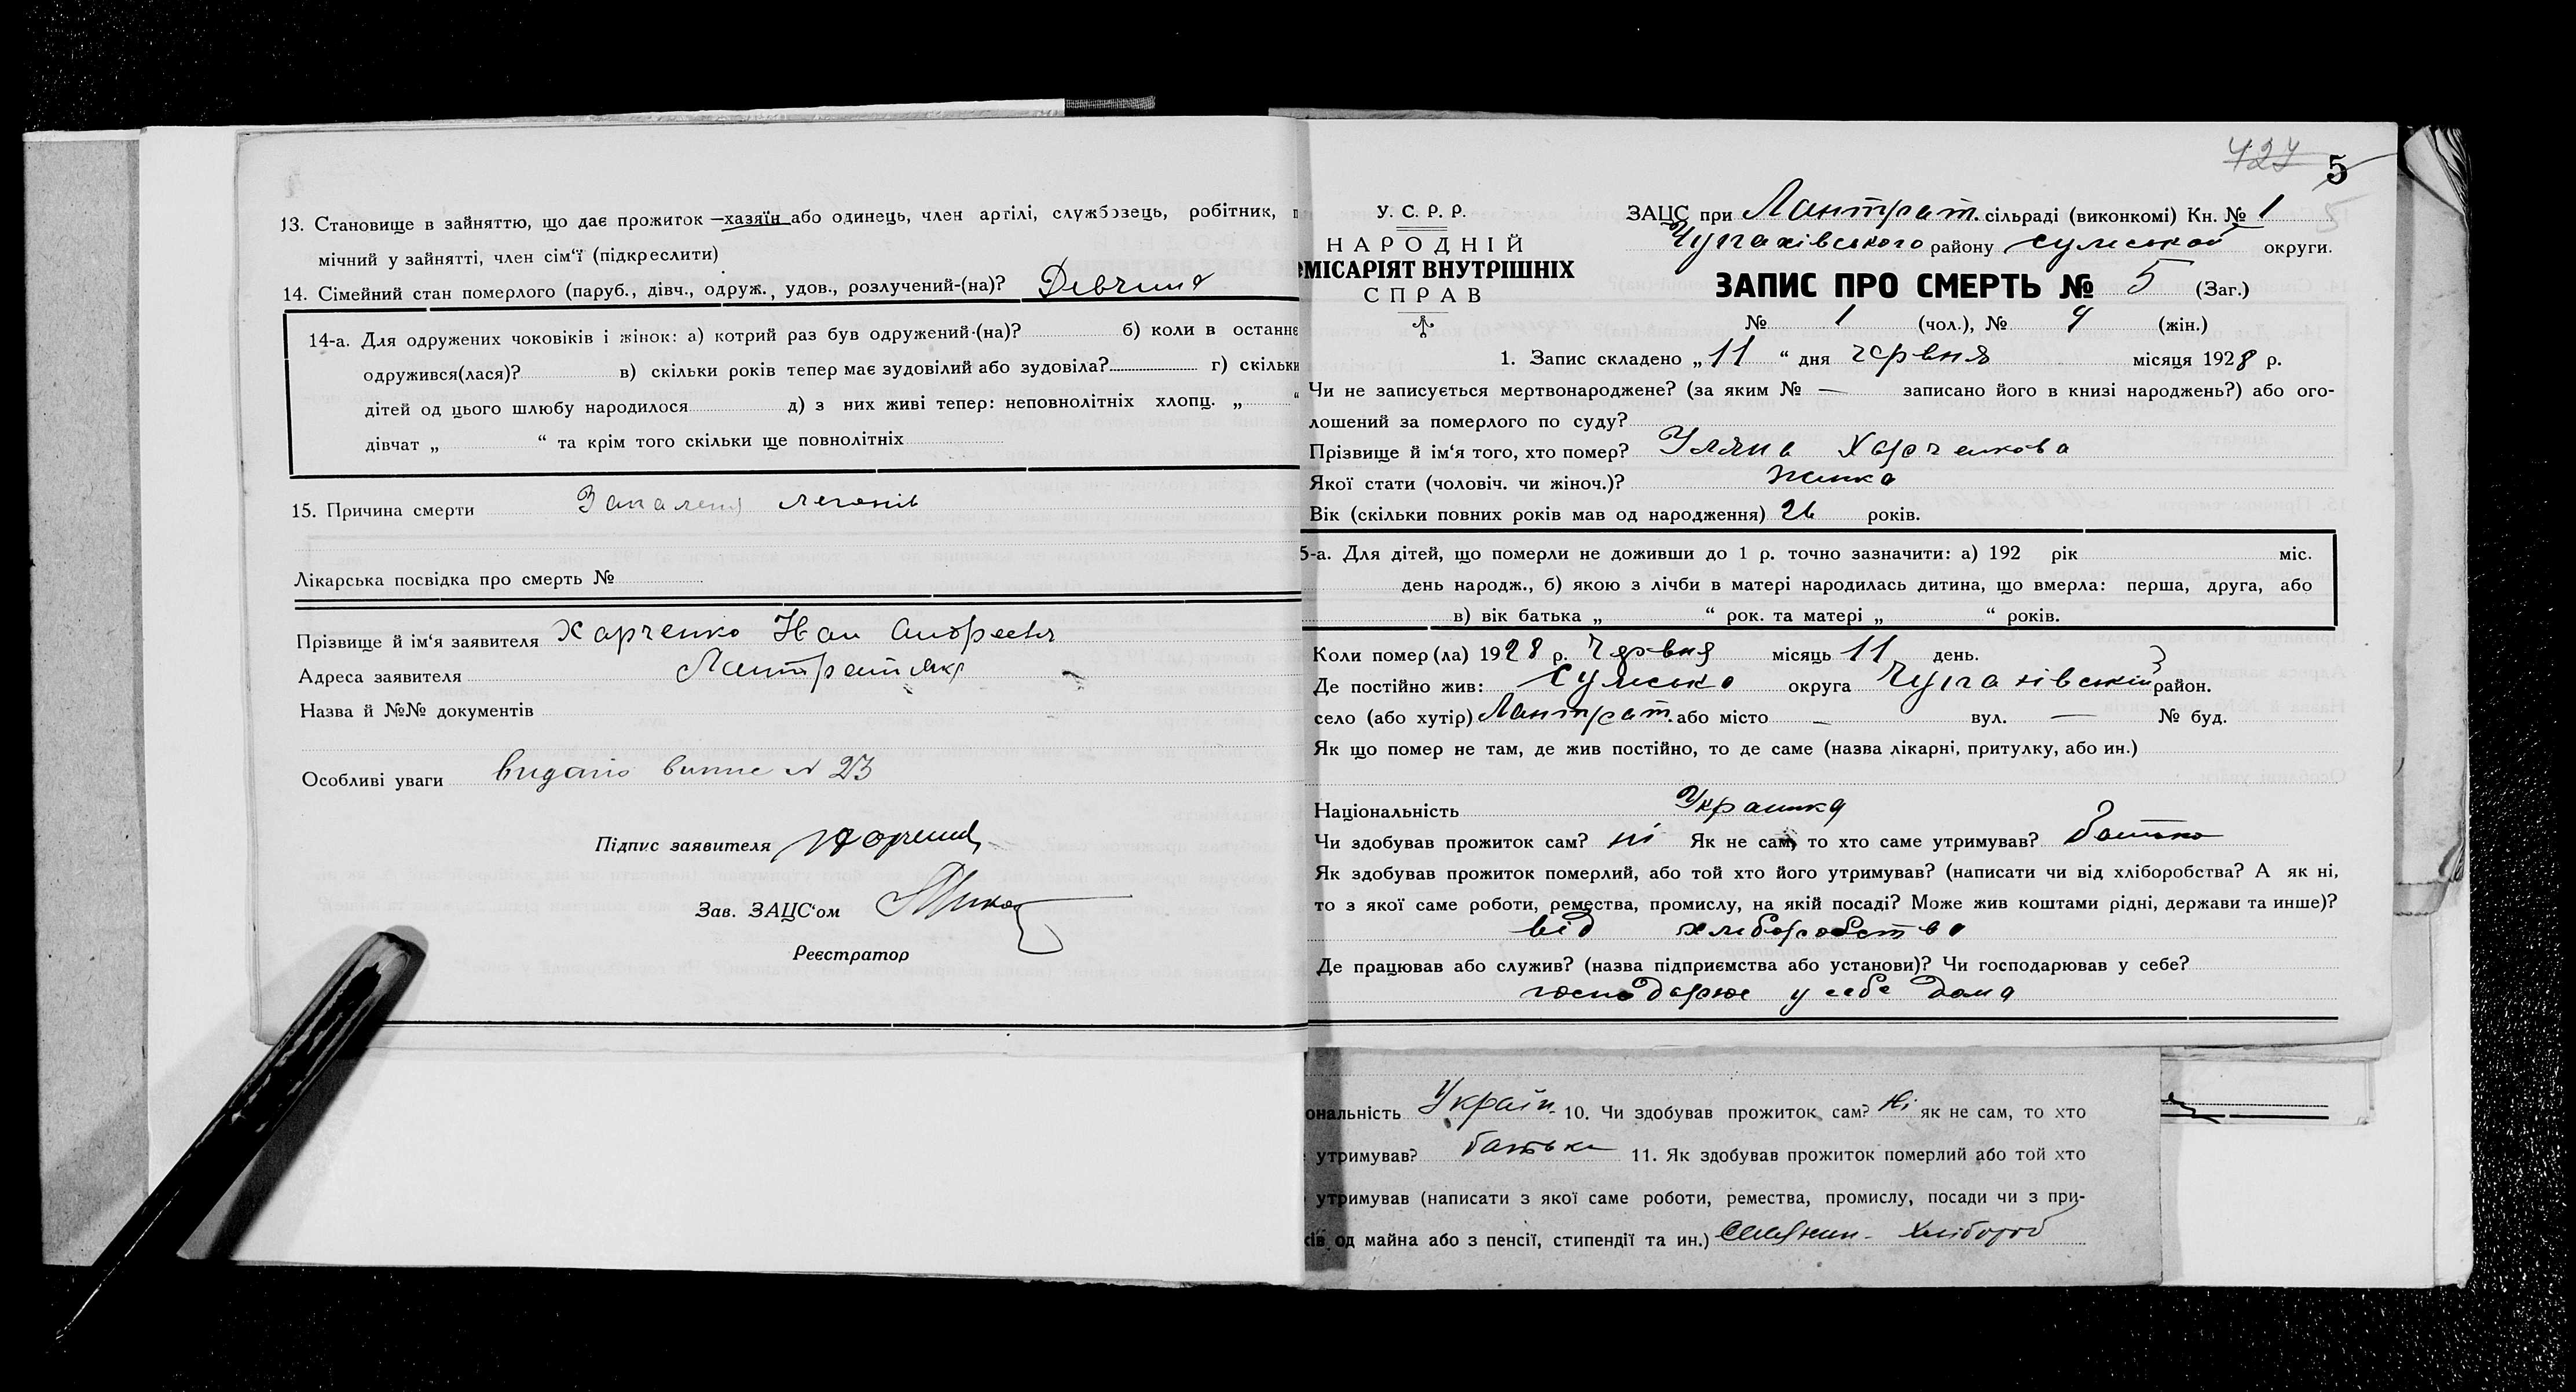 13. Становище в зайняттю, що дає прожиток — хазяїн або одинець, член артілі, службовець, робітник, п
мічний у зайнятті, член сім'ї (підкреслити)
14. Сімейний стан померлого (паруб., дівч., одруж., удов., розлучений-(на)? Девчина
14-а. Для одружених чоковіків і жінок: а) котрий раз був одружений-(на)? б) коли в останнє
одружився(лася)? в) скільки років тепер має зудовілий або зудовіла? г) скільки
дітей од цього шлюбу народилося д) з них живі тепер: неповнолітніх хлопц. „ “
дівчат „ “ та крім того скільки ще повнолітніх
15. Причина смерти Запаленя легенів
Лікарська посвідка про смерть №
Прізвище й ім'я заявителя Харченко Іван
Адреса заявителя
Назва й №№ документів
Особливі уваги видано випис N 23
Підпис заявителя
Зав. ЗАЦС'ом
Реєстратор
427 5
5
У. С. Р. Р.
НАРОДНІЙ
МІСАРІЯТ ВНУТРІШНІХ
СПРАВ
ЗАЦС при Лантрат. сільраді (виконкомі) Кн. № 1
Чупахівського району Сумської округи.
ЗАПИС ПРО СМЕРТЬ № 5 (Заг.)
№ 1 (чол.), № 4 (жін.)
1. Запис складено „11“ дня червня місяця 1928 р.
Чи не записується мертвонароджене? (за яким № — записано його в книзі народжень?) або ого-
лошений за померлого по суду?
Прізвище й ім'я того, хто помер? Уляна Харченкова
Якої стати (чоловіч. чи жіноч.)? жинка
Вік (скільки повних років мав од народження) 26 років.
5-а. Для дітей, що померли не доживши до 1 р. точно зазначити: а) 192 рік міс.
день народж., б) якою з лічби в матері народилась дитина, що вмерла: перша, друга, або
в) вік батька „ “ рок. та матері „ “ років.
Коли помер(ла) 1928 р. Червня місяць 11 день.
Де постійно жив: Сумська округа Чупахівський район.
село (або хутір) Лантрат. або місто — вул. — № буд.
Як що помер не там, де жив постійно, то де саме (назва лікарні, притулку, або ин.)
Національність Украинка
Чи здобував прожиток сам? ні Як не сам, то хто саме утримував? батько
Як здобував прожиток померлий, або той хто його утримував? (написати чи від хліборобства? А як ні,
то з якої саме роботи, ремества, промислу, на якій посаді? Може жив коштами рідні, держави та инше)?
від хлиборобства
Де працював або служив? (назва підприємства або установи)? Чи господарював у себе?
господарює у себе дома
ональність Україн. 10. Чи здобував прожиток сам? Ні як не сам, то хто
утримував? батько 11. Як здобував прожиток померлий або той хто
утримував (написати з якої саме роботи, ремества, промислу, посади чи з при-
ків од майна або з пенсії, стипендії та ин.) Селянин - хлібороб